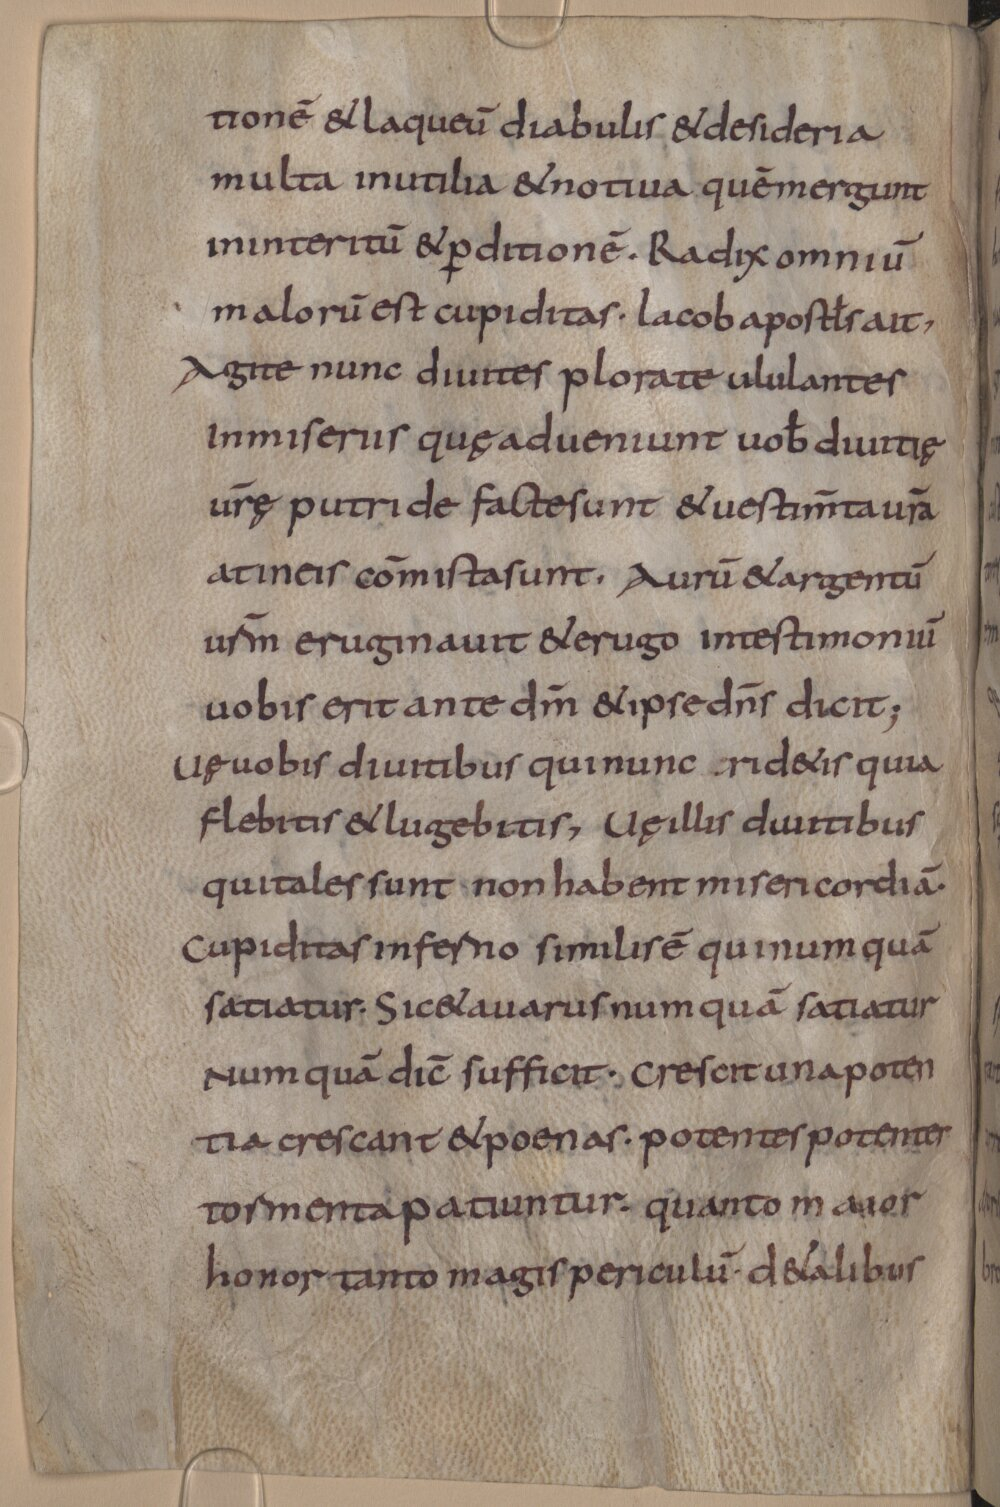 tionē & laqueū diabulis & desideria
multa inutilia & notiua quē mergunt
in interitū & ꝑditionē. Radix omniū
malorū est cupiditas. Iacob apostl̄s ait,
Agite nunc diuites plorate ululantes
In miseriis quę adueniunt uob̄ diuitię
ur̄ę putride facte sunt & uestim̄ta ur̄a
a tineis cōmista sunt. Aurū & argentū
usr̄m eruginauit & erugo in testimoniū
uobis erit ante dm̄ & ipse dn̄s dicit;
Uę uobis diuitibus qui nunc rid&is quia
flebitis & lugebitis, Uę illis diuitibus
qui tales sunt non habent misericordiā.
Cupiditas inferno similis ē qui numquā
satiatur. Sic & auarus numquā satiatur
Numquā dic̄ sufficit. Crescit una poten
tia crescant & poenas. potentes potenter
tormenta patiuntur. quanto maior
honor tanto magis periculū. d& alibus